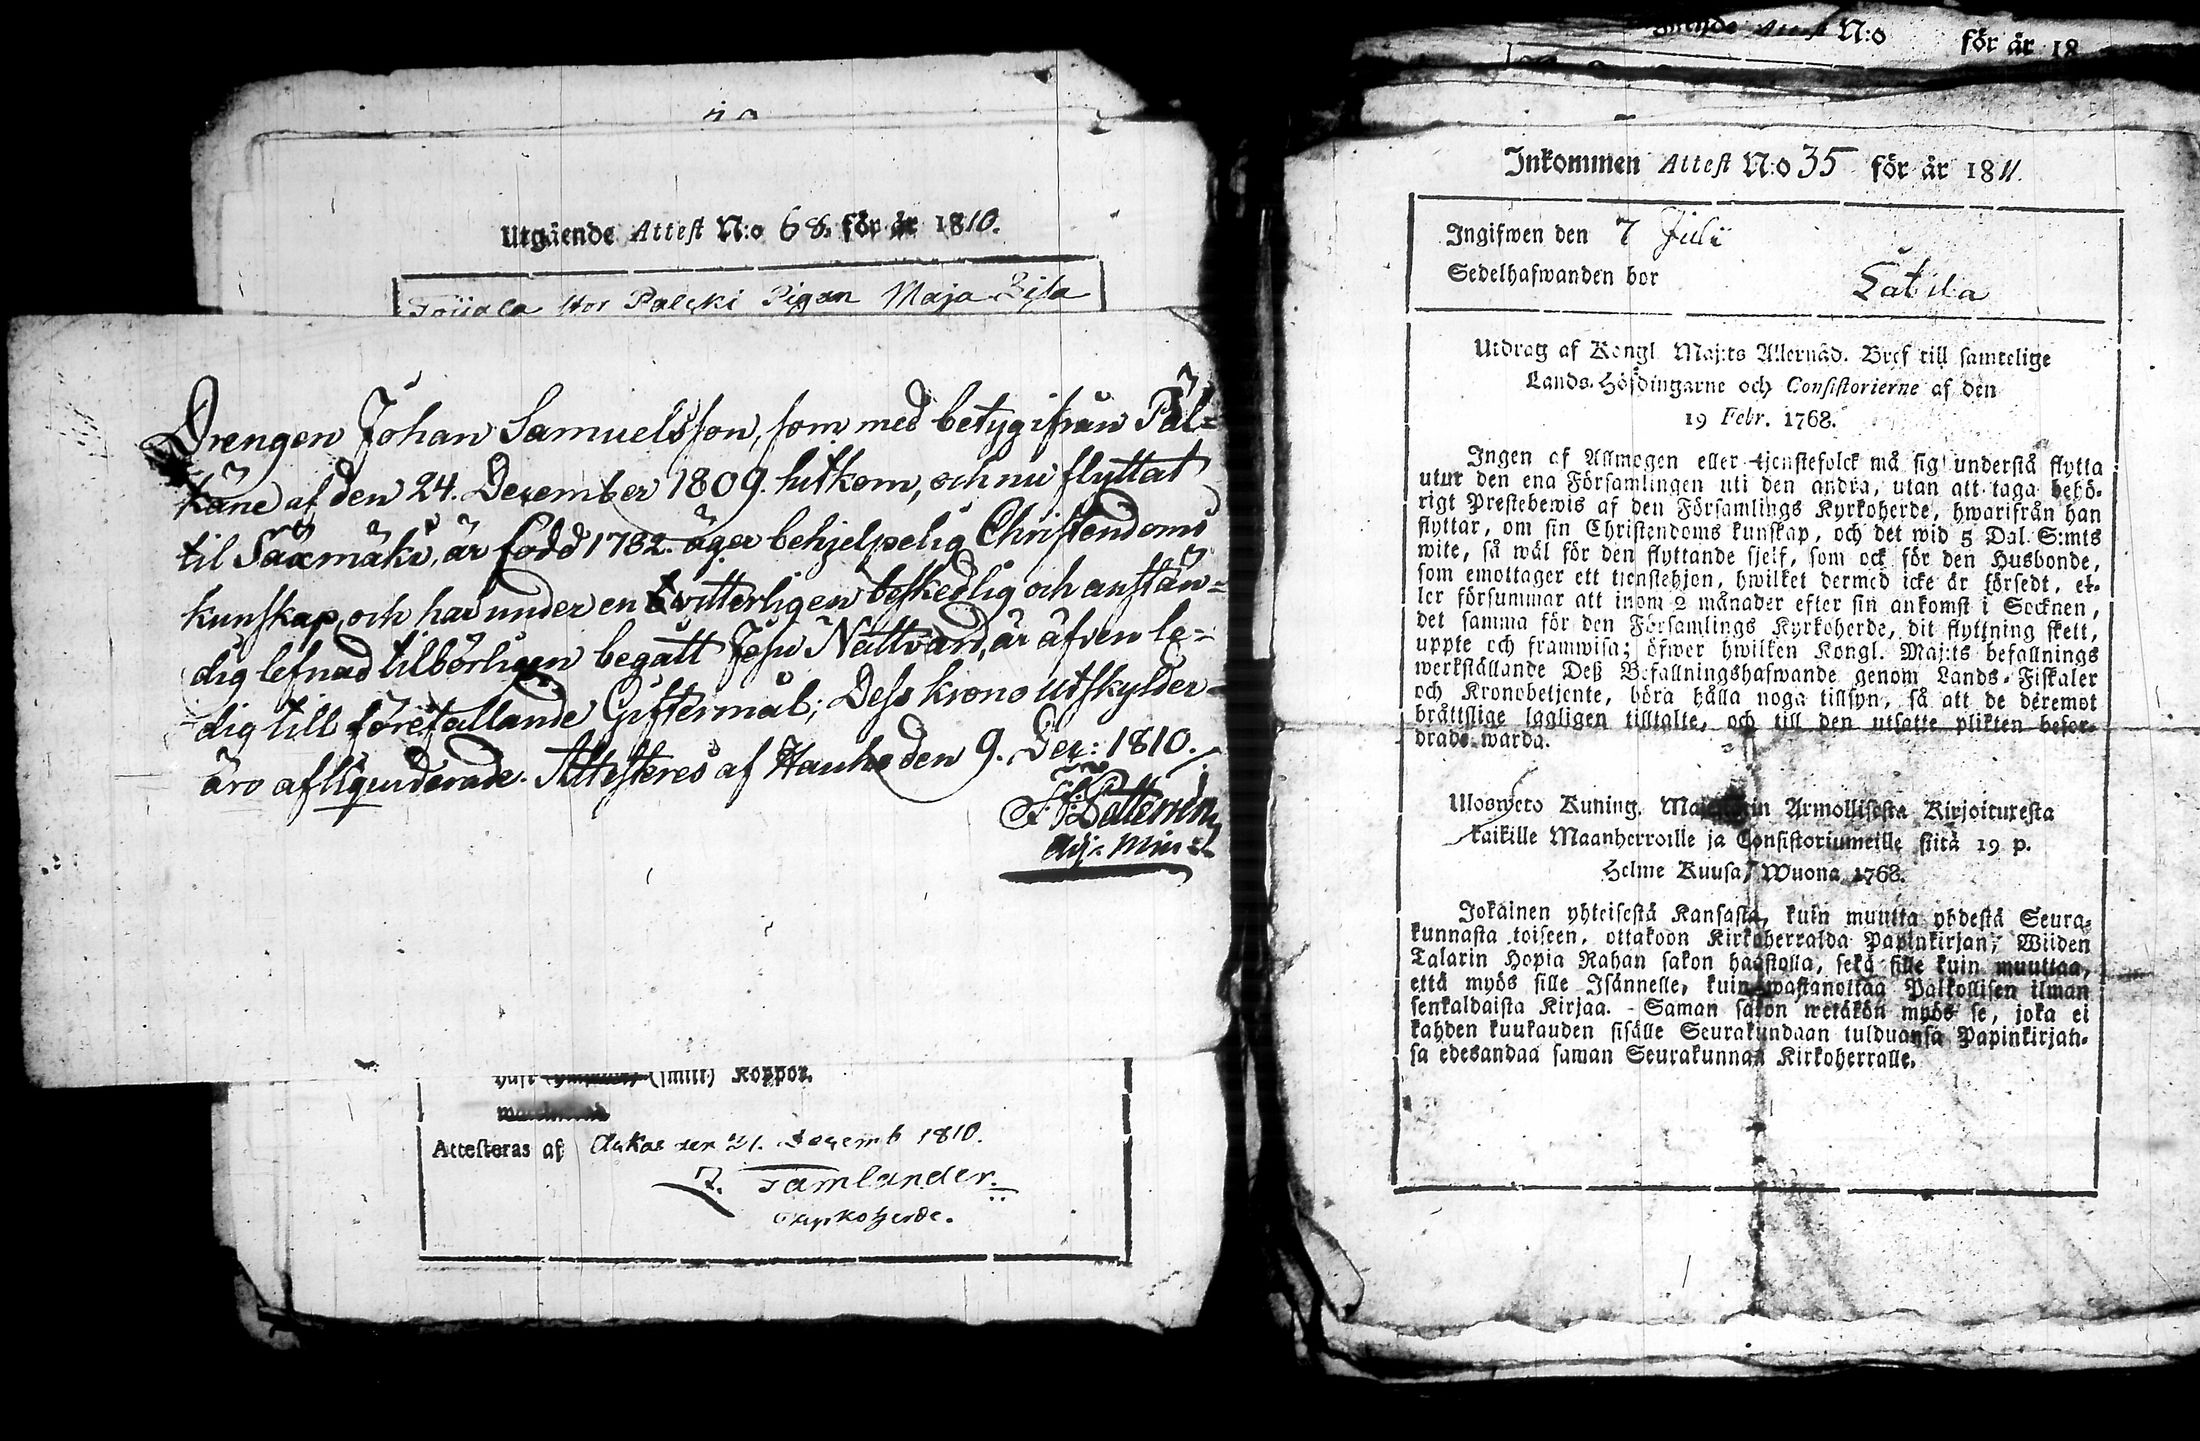 Utgående Attest N:o 68. för år 1810.
Stor Palcki Pigan Maja
Drengen Johan Samuelsson, som med betyg ifrån Päl-
käne af den 24. December 1809. hitkom, och nu flyttat
til Sääxmäki, är född 1782. äger behjelpelig Christendoms
kunskap, och har under en witterligen beskedlig och anstän-
dig lefnad tilbörligen begått Jesu Nattvard, är äfven le-
dig till förefallande Giftermål; Dess krono utskylder
äro afliquiderade. Attesteres af Hauho den 9. Dec: 1810.
Adj: Min:
(smitt) Koppor.
Attesteras af Ackas den 21. Decemb 1810.
Tamlander.
Kyrkoherde.
Attest N:o för år 18
Inkommen Attest N:o 35 för år 1811.
Ingifwen den 7 Juli
Sedelhafwanden bor
Utdrag af Kongl Maj:ts Allernåd. Bref till samtelige
Lands-Höfdingarne och Consistorierne af den
19 Febr. 1768.
Ingen af Allmogen eller tjenstefolck må sig understå flytta
utur den ena Församlingen uti den andra, utan att taga behö-
rigt Prestebewis af den Församlings Kyrkoherde, hwarifrån han
flyttar, om sin Christendoms kunskap, och det wid 5 Dal. S:mts
wite, så wäl för den flyttande sjelf, som ock för den Husbonde,
som emottager ett tjenstehjon, hwilket dermed icke är försedt, el-
ler försummar att inom 2 månader efter sin ankomst i Socknen,
det samma för den Församlings Kyrkoherde, dit flyttning skett,
uppte och framwisa; öfwer hwilken Kongl. Maj:ts befallnings
werkställande Deß Befallningshafwande genom Lands-Fiskaler
och Kronobetjente, böra hålla noga tillsyn, så att de deremot
bråttslige lagligen tilltalte, och till den utsatte plikten befor-
drade warda.
Ulosweto Kuning. Armollisesta Kirjoituxesta
kaikille Maanherroille ja Consistoriumeille siitä 19 p.
Helme Kuusa, Wuona 1768.
Jokainen yhteisestä Kansasta, kuin muutta yhdestä Seura-
kunnasta toiseen, ottakoon Kirkoherralda Papinkirjan; Wiiden
Talarin Hopia Rahan sakon haastolla, sekä sille kuin muuttaa,
että myös sille Isännelle, kuin wastanottaa Palkollisen ilman
senkaldaista Kirjaa. Saman sakon wetäkön myös se, joka ei
kahden kuukauden sisälle Seurakundaan tulduansa Papinkirjan-
sa edesandaa saman Seurakunnan Kirkoherralle.